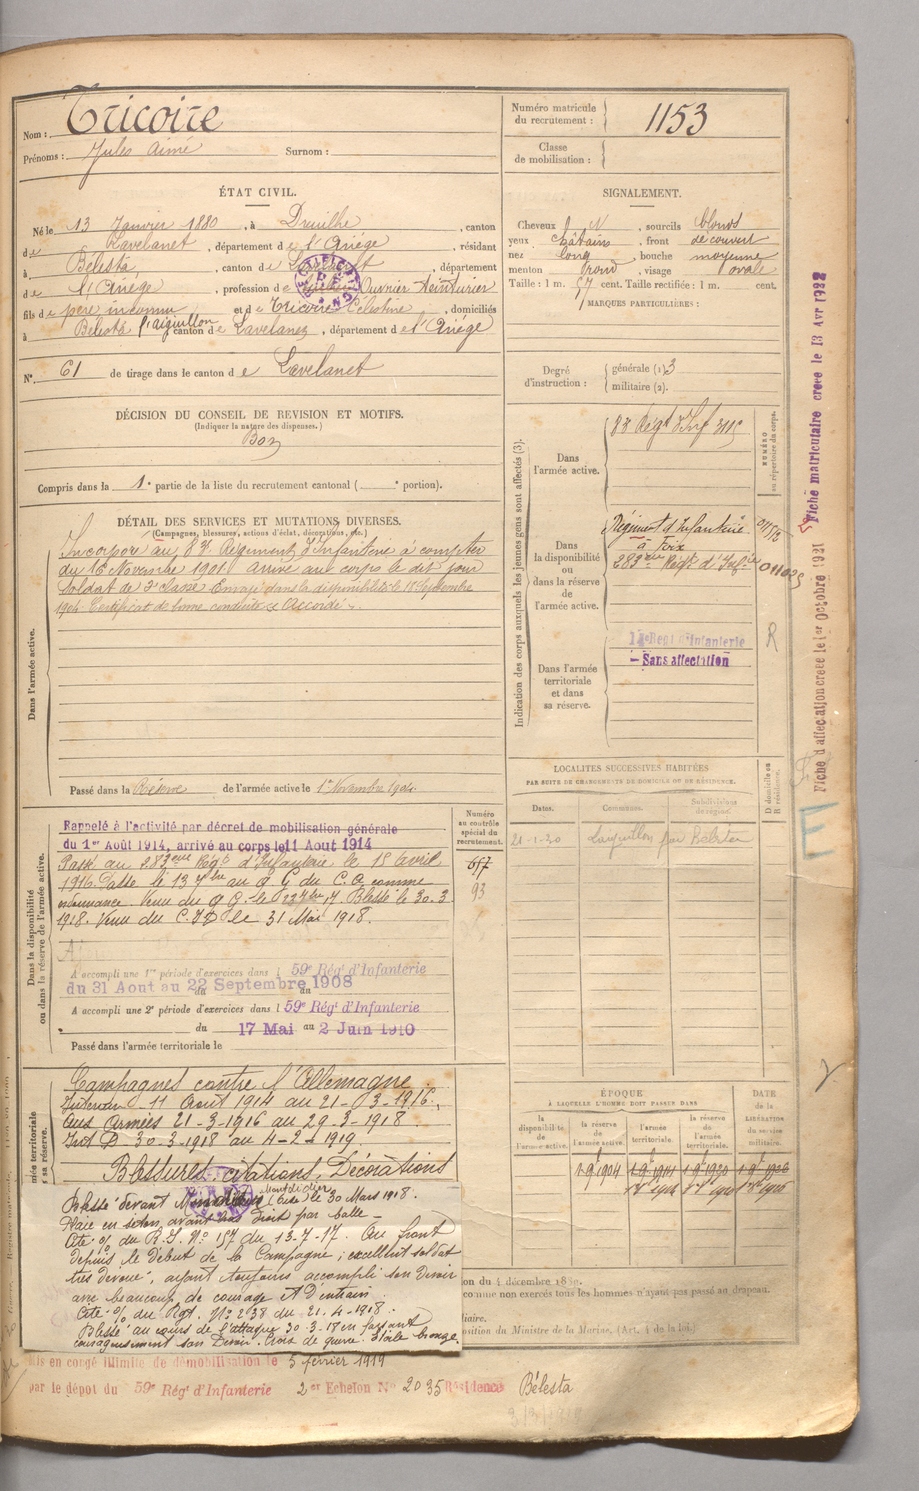 Nom : Tricoire
Prénoms : Jules Aimé Surnom :
Numéro matricule du recrutement : 1153
Classe de mobilisation :
ÉTAT CIVIL.
Né le 13 Janvier 1880, à Dreuilhe, canton
de Lavelanet, département de l'Ariège, résidant
à Bélesta, canton de Lavelanet, département
de l'Ariège, profession de Ouvrier teinturier
fils de père inconnu et de Tricoire Célestine, domiciliés
à Bélesta l'aiguillon canton de Lavelanet, département de l'Ariège
N° 61 de tirage dans le canton de Lavelanet
DÉCISION DU CONSEIL DE REVISION ET MOTIFS.
(Indiquer la nature des dispenses.)
Bon
Compris dans la 1e partie de la liste du recrutement cantonal ( e portion).
DÉTAIL DES SERVICES ET MUTATIONS DIVERSES.
(Campagnes, blessures, actions d'éclat, décorations, etc.)
Dans l'armée active.
Incorporé au 83e Régiment d'Infanterie à compter
du 16 Novembre 1901 arrivé au corps le dit jour
soldat de 2e classe Envoyé dans la disponibilité le 18 Septembre
1904. Certificat de bonne conduite Accordé.
Passé dans la Réserve de l'armée active le 1er Novembre 1904
Dans la disponibilité ou dans la réserve de l'armée active.
Numéro au contrôle spécial du recrutement.
657
93
Rappelé à l'activité par décret de mobilisation générale
du 1er Août 1914, arrivé au corps le 11 Aout 1914
Passé au 283ème Rég. d'Infanterie le 15 avril
1916. Passé le 13 7bre au Q G du C.A. comme
ordonnance. Venu du Q G. le 22 7bre 17. Blessé le 30.3
1918. Venu du C.I.D le 31 Mai 1918.
A accompli une 1re période d'exercices dans l 59e Régt d'Infanterie
du 31 Aout au 22 Septembre 1908
A accompli une 2e période d'exercices dans l 59e Régt d'Infanterie
du 17 Mai au 2 Juin 1910
Passé dans l'armée territoriale le
Campagnes contre l'Allemagne
Intérieur 11 Août 1914 au 21-3-1916.
Aux Armées 21-3-1916 au 29-3-1918
Int D 30-3-1918 au 4-2-1919.
Blessures, citations, Décorations
Blessé devant Montdidier (Oise) le 30 Mars 1918.
Plaie en séton avant bras droit par balle –
Cité % du R.I. N° 157 du 13-7-17. Au front
depuis le Début de la Campagne ; excellent soldat
très dévoué, ayant toujours accompli son Devoir
avec beaucoup de courage et D'entrain.
Cité % du Rgt. N° 238 du 21-4-1918.
Blessé au cours de l'attaque 30-3-18 en faisant
courageusement son Devoir. Croix de guerre. Etoile bronze.
Mis en congé illimité de démobilisation le 5 février 1919
par le dépôt du 59e Régt d'Infanterie 2e Echelon N° 2035 Résidence Bélesta
SIGNALEMENT.
Cheveux , sourcils blonds
yeux châtains, front découvert
nez long, bouche moyenne
menton rond, visage ovale
Taille : 1 m. 57 cent. Taille rectifiée : 1 m. cent.
MARQUES PARTICULIÈRES :
Degré d'instruction : générale (1) 3
militaire (2).
Indication des corps auxquels les jeunes gens sont affectés (3).
NUMÉRO au répertoire du corps.
Dans l'armée active.
83 Régt d'Inf
Dans la disponibilité ou dans la réserve de l'armée active.
Régiment d'Infanterie
à Foix
283ème Régt d'Infie
Dans l'armée territoriale et dans sa réserve.
Regt d'Infanterie
– Sans affectation
R
LOCALITÉS SUCCESSIVES HABITÉES
PAR SUITE DE CHANGEMENTS DE DOMICILE OU DE RÉSIDENCE.
Dates. Communes. Subdivisions de région. D domicile ou R résidence.
21-1-20 L'aiguillon par Bélesta
ÉPOQUE
À LAQUELLE L'HOMME DOIT PASSER DANS
la disponibilité de l'armée active. la réserve de l'armée active. l'armée territoriale. la réserve de l'armée territoriale. DATE de la LIBÉRATION du service militaire.
Fiche d'affectation créée le 1er Octobre 1921
Fiche matriculaire créée le 13 Avr 1922
E